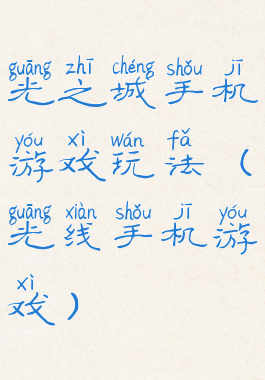 guāng zhī chéng shǒu jī
光之城手机
yóu xì wán fǎ
游戏玩法（
guāng xiàn shǒu jī yóu
光线手机游
xì
戏）